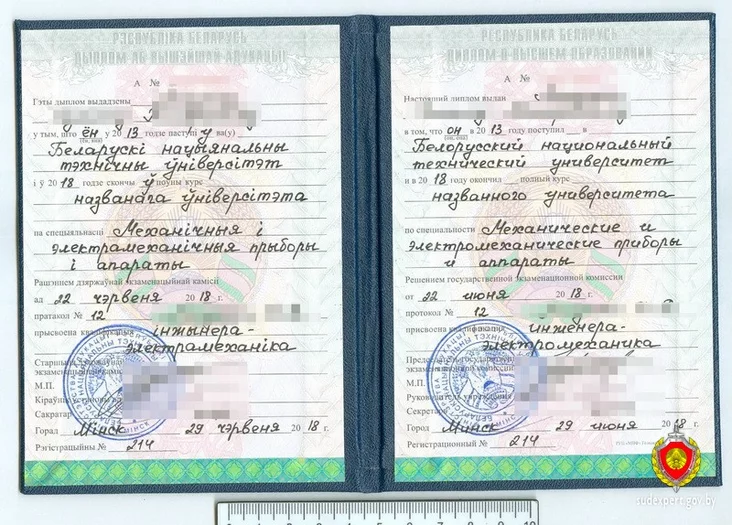 РЭСПУБЛІКА БЕЛАРУСЬ
ДЫПЛОМ АБ ВЫШЭЙШАЙ АДУКАЦЫІ
А №
Гэты дыплом выдадзены
у тым, што ён у 2013 годзе паступіў у ва(у)
Беларускі нацыянальны
тэхнічны ўніверсітэт
і ў 2018 годзе скончыў поўны курс
названага ўніверсітэта
па спецыяльнасці Механічныя і
электрамеханічныя прыборы
і апараты
Рашэннем дзяржаўнай экзаменацыйнай камісіі
ад 22 чэрвеня 2018 г.
пратакол № 12
прысвоена інжынера-
электрамеханіка
Старшыня
М.П.
Сакратар
Горад Мінск 29 чэрвеня 2018 г.
Рэгістрацыйны № 214
РЕСПУБЛИКА БЕЛАРУСЬ
ДИПЛОМ О ВЫСШЕМ ОБРАЗОВАНИИ
А №
Настоящий диплом выдан
в том, что он в 2013 году поступил в
Белорусский национальный
технический университет
и в 2018 году окончил полный курс
названного университета
по специальности Механические и
электромеханические приборы
и аппараты
Решением государственной экзаменационной комиссии
от 22 июня 2018 г.
протокол № 12
присвоена квалификация инженера-
электромеханика
экзаменационной комиссии
М.П.
Руководитель учреждения
Секретарь
Город Минск 29 июня 2018 г.
Регистрационный № 214
sudexpert.gov.by
1 2 3 4 5 6 7 8 9 10